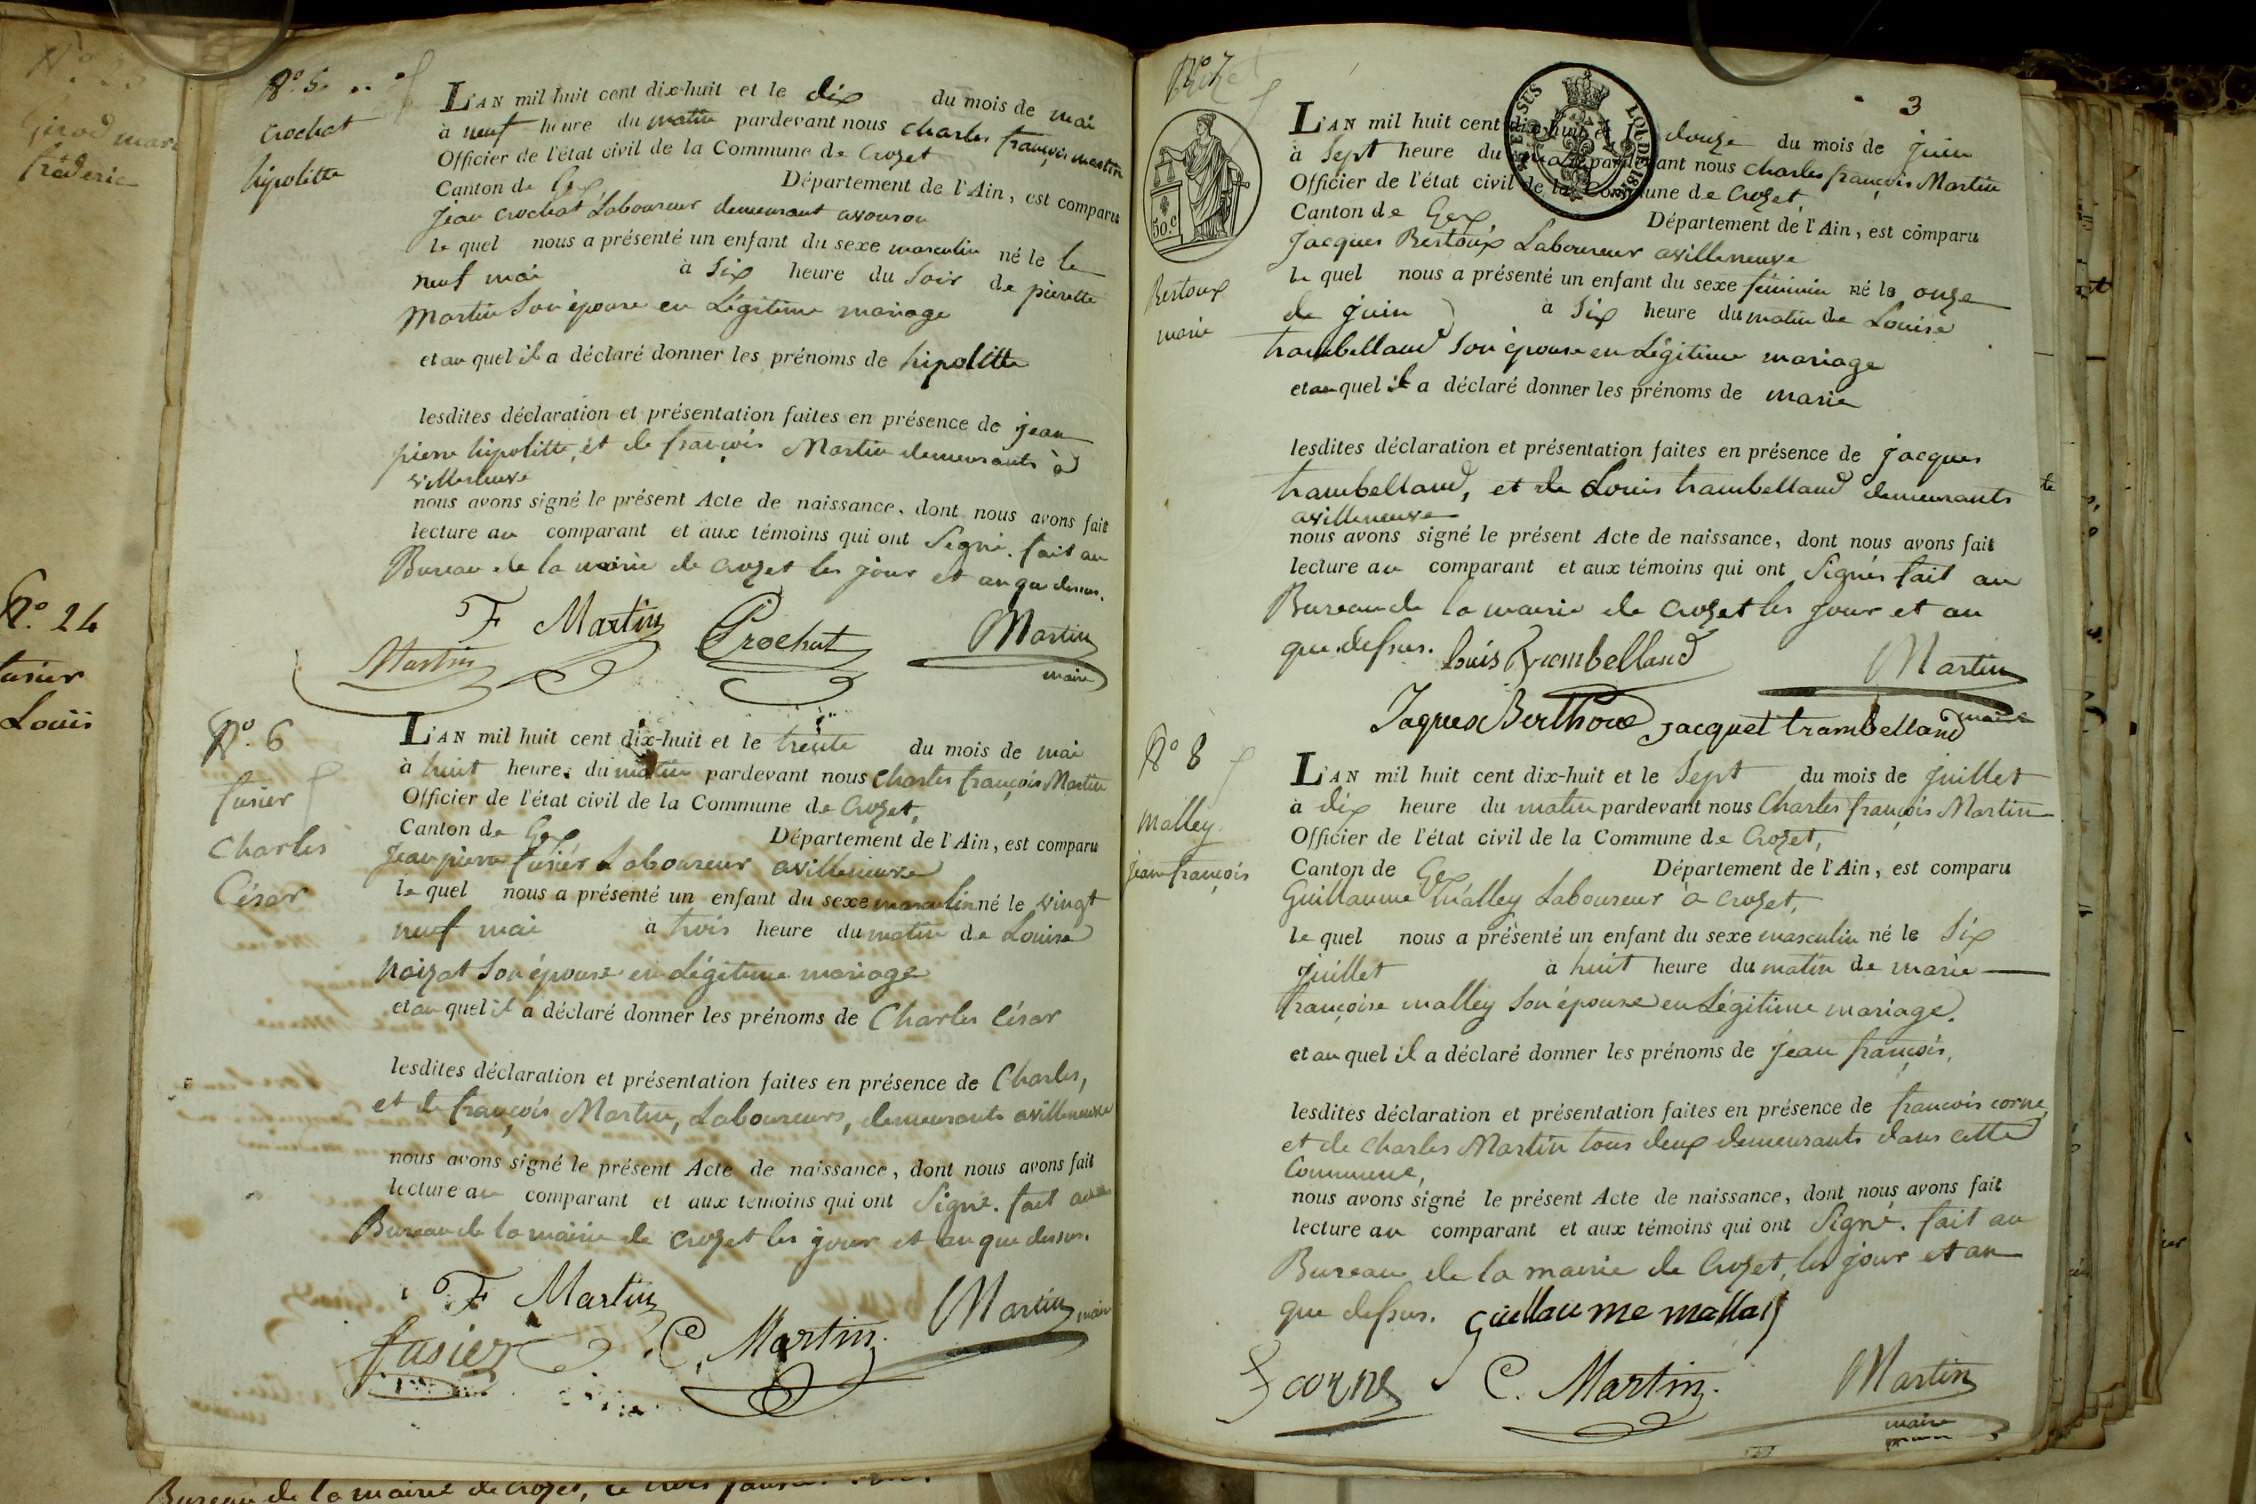 Girod
frédéric
N.º 24
fusier
Louis
Nº 5.
crochat
hipolitte
L'AN mil huit cent dix-huit et le dix du mois de mai
à neuf heure du matin pardevant nous charles françois martin
Officier de l'état civil de la Commune de Crozet
Canton de Gex Département de l'Ain, est comparu
jean crochat Laboureur demeurant
le quel nous a présenté un enfant du sexe masculin né le le
neuf mai à six heure du soir de pierette
Martin son épouse en Légitime mariage
et au quel il a déclaré donner les prénoms de hipolitte
lesdites déclaration et présentation faites en présence de jean
pierre hipolitte, et de françois Martin demeurants à
villeneuve
nous avons signé le présent Acte de naissance, dont nous avons fait
lecture au comparant et aux témoins qui ont Signé. fait au
Bureau de la mairie de crozet les jour et an que dessus.
F Martin Crochat Martin
Martin maire
Nº. 6
fusier
Charles
César
L'AN mil huit cent dix-huit et le trente du mois de mai
à huit heure du matin pardevant nous charles françois Martin
Officier de l'état civil de la Commune de Crozet,
Canton de Gex Département de l'Ain, est comparu
jean pierre fusier Laboureur avilleneuve
le quel nous a présenté un enfant du sexe masculin né le vingt
neuf mai à trois heure du matin de Louise
son épouse en Légitime mariage
et au quel il a déclaré donner les prénoms de Charles César
lesdites déclaration et présentation faites en présence de Charles,
et de françois Martin, Laboureurs, demeurants avilleneuve
nous avons signé le présent Acte de naissance, dont nous avons fait
lecture au comparant et aux témoins qui ont Signé. fait au
Bureau de la mairie de crozet les jour et an que dessus.
F Martin
fusier C. Martin. Martin maire
Nº 7
3
50.c
Bertoux
marie
L'AN mil huit cent dix-huit et le douze du mois de juin
à sept heure du matin pardevant nous charles françois Martin
Officier de l'état civil de la Commune de Crozet,
Canton de Gex Département de l'Ain, est comparu
jacques Bertoux Laboureur avilleneuve
le quel nous a présenté un enfant du sexe féminin né le onze
de juin à Six heure du matin de Louise
trambelland son épouse en Légitime mariage
et au quel il a déclaré donner les prénoms de marie
lesdites déclaration et présentation faites en présence de jacques
trambelland, et de Louis trambelland demeurants
avilleneuve
nous avons signé le présent Acte de naissance, dont nous avons fait
lecture au comparant et aux témoins qui ont Signés fait au
Bureau de la mairie de crozet les jour et an
que dessus. louis Trambelland Martin
Jaques Berthoux jacquet trambelland maire
Nº 8
malley
jean françois
L'AN mil huit cent dix-huit et le Sept du mois de juillet
à dix heure du matin pardevant nous Charles françois Martin
Officier de l'état civil de la Commune de Crozet,
Canton de Gex Département de l'Ain, est comparu
Guillaume Malley Laboureur à crozet,
le quel nous a présenté un enfant du sexe masculin né le Six
juillet à huit heure du matin de marie
françoise malley son épouse en Légitime mariage.
et au quel il a déclaré donner les prénoms de jean françois,
lesdites déclaration et présentation faites en présence de francois corne,
et de charles Martin tous deux demeurants dans cette
Commune,
nous avons signé le présent Acte de naissance, dont nous avons fait
lecture au comparant et aux témoins qui ont Signé. fait au
Bureau de la mairie de Crozet, les jour et an
que dessus. guillaume mallay
F corne C. Martin. Martin
maire
Bureau de la mairie de crozet, le trois